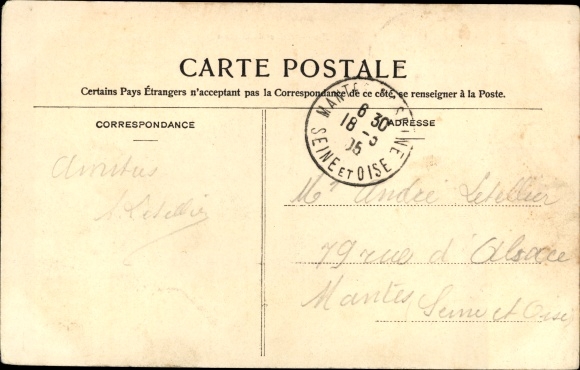 CARTE POSTALE
Certains Pays Étrangers n'acceptant pas la Correspondance de ce côté, se renseigner à la Poste.
CORRESPONDANCE
ADRESSE
MANTES SEINE
6 30
18 -
05
SEINE ET OISE
Amitiés
Letellier
Mr André Letellier
79 rue d'Alsace
Mantes Seine et Oise